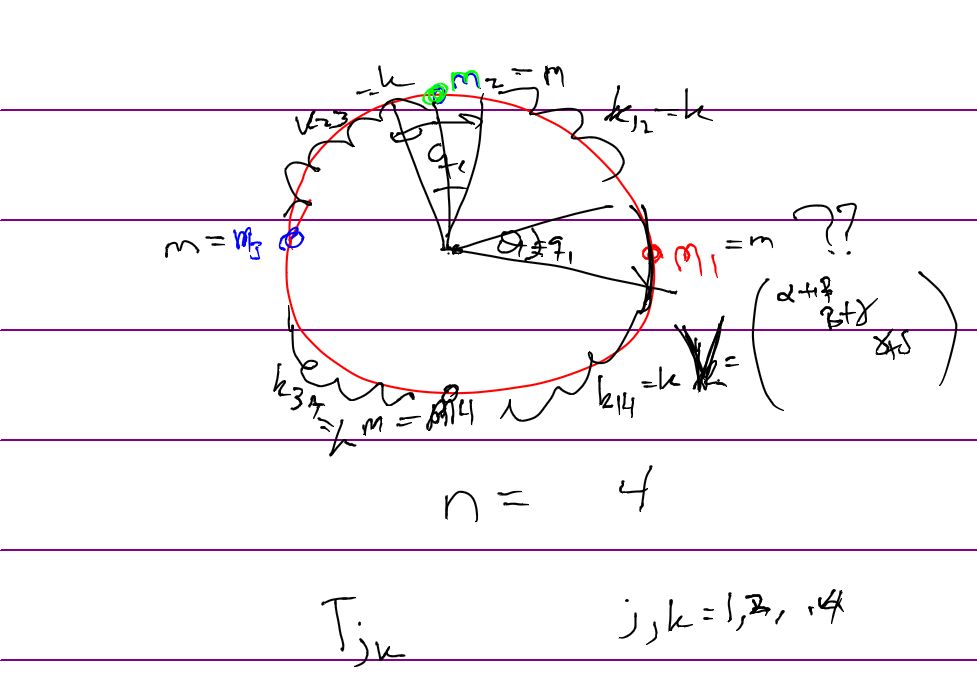 = k m2 = m
k23 k12 = k
q2
m = m3 θ1 = q1 m1 = m ??
α+β
β+γ
γ+δ
k34 = k m = m4 k14 = k V =
n = 4
Tjk j,k = 1,2, ..4